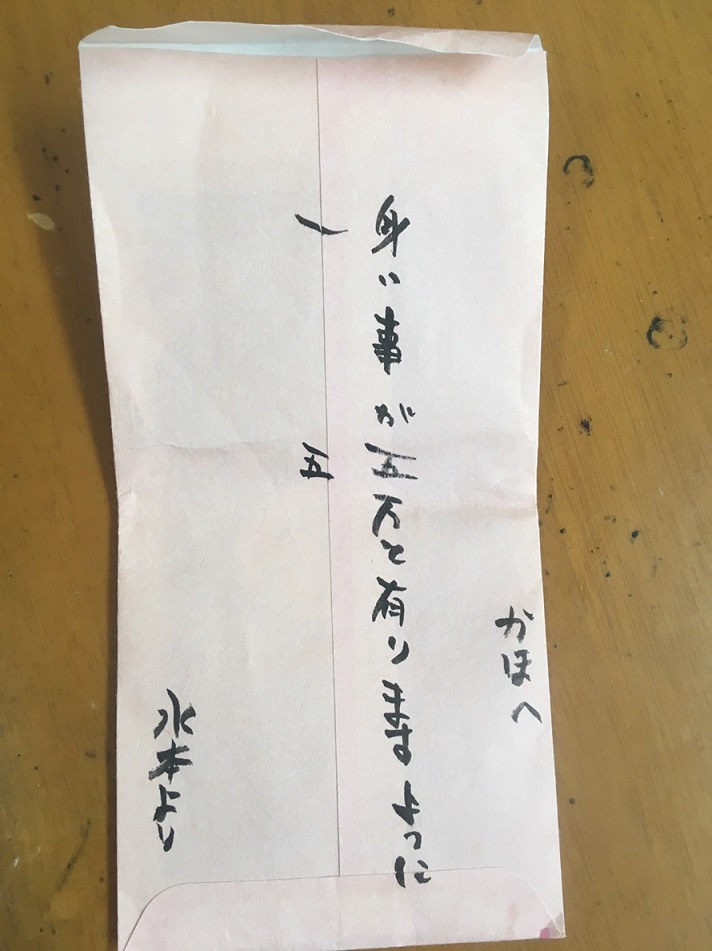 かほへ
良い事が五万と有りますように
一 五
水本より